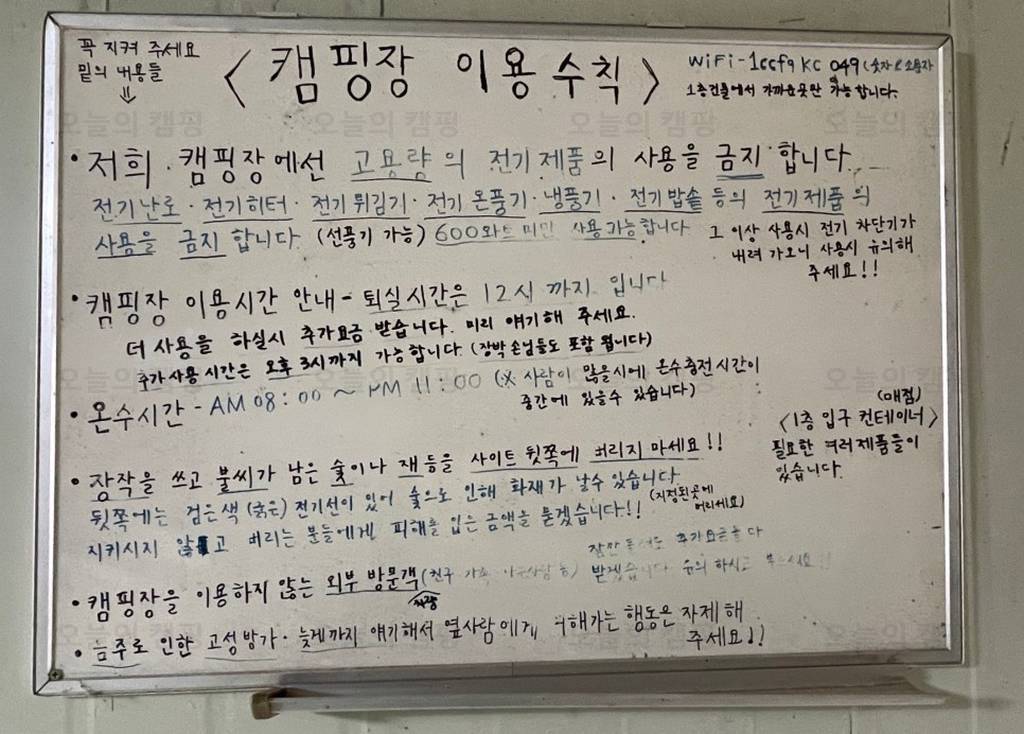 꼭 지켜 주세요
밑의 내용들
〈캠핑장 이용수칙〉
WiFi - 1ccf9 KC 049 (숫자 소문자
1층건물에서 가까운곳만 가능합니다.
• 저희 캠핑장에선 고용량의 전기제품의 사용을 금지 합니다.
전기난로 · 전기히터 · 전기튀김기 · 전기온풍기 · 냉풍기 · 전기밥솥 등의 전기제품의
사용을 금지 합니다 (선풍기 가능) 600와트 미만 사용가능합니다
그 이상 사용시 전기 차단기가
내려 가오니 사용시 유의해
주세요!!
• 캠핑장 이용시간 안내 - 퇴실시간은 12시 까지 입니다
더 사용을 하실시 추가요금 받습니다. 미리 얘기해 주세요.
추가사용시간은 오후 3시까지 가능합니다. (장박 손님들도 포함 됩니다)
• 온수시간 - AM 08:00 ~ PM 11:00 (※ 사람이 많을시에 온수충전시간이
중간에 있을수 있습니다)
(매점)
〈1층 입구 컨테이너〉
필요한 여러제품들이
있습니다.
• 장작을 쓰고 불씨가 남은 숯이나 재등을 사이트 뒷쪽에 버리지 마세요!!
뒷쪽에는 검은색 (굵은) 전기선이 있어 숯으로 인해 화재가 날수 있습니다
(지정된곳에
버리세요)
지키시지 않고 버리는 분들에겐 피해를 입은 금액을 묻겠습니다!!
• 캠핑장을 이용하지 않는 외부 방문객 (친구 가족
잠깐 추가요금을 다
받겠습니다 유의 하시고
• 음주로 인한 고성방가 · 늦게까지 얘기해서 옆사람에게 가는 행동은 자제해
주세요!!
오늘의 캠핑
오늘의 캠핑
오늘의 캠핑
오늘의 캠핑